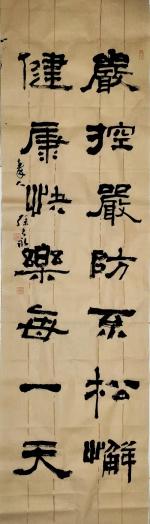 嚴控嚴防不松懈
健康快樂每一天